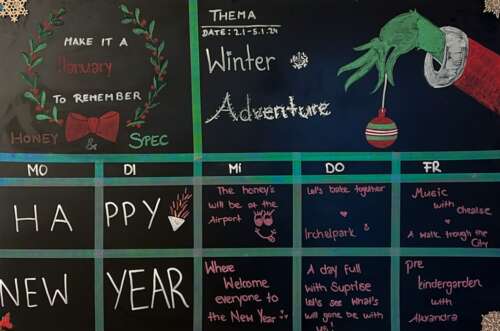 MAKE IT A
January
TO REMEMBER
HONEY & SPEC
THEMA
DATE: 2.1-5.1.24
Winter
Adventure
MO
DI
Mi
DO
FR
HA
PPY
The honey's
will be at the
Airport
let's bake together
Irchelpark
Music
with chealse
A walk trough the
City
NEW
YEAR
Where
Welcome
everyone to
the New Year
A day full
with Suprise
let's see what's
will gone be with
us!
pre
kindergarden
with
Alexandra